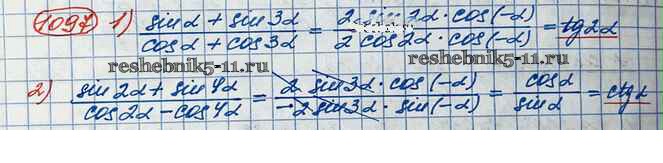 1097 1) (sinα + sin3α)/(cosα + cos3α) = (2 sin2α · cos(-α))/(2 cos2α · cos(-α)) = tg2α
reshebnik5-11.ru reshebnik5-11.ru
2) (sin2α + sin4α)/(cos2α - cos4α) = (2 sin3α · cos(-α))/(-2 sin3α · sin(-α)) = cosα/sinα = ctgα